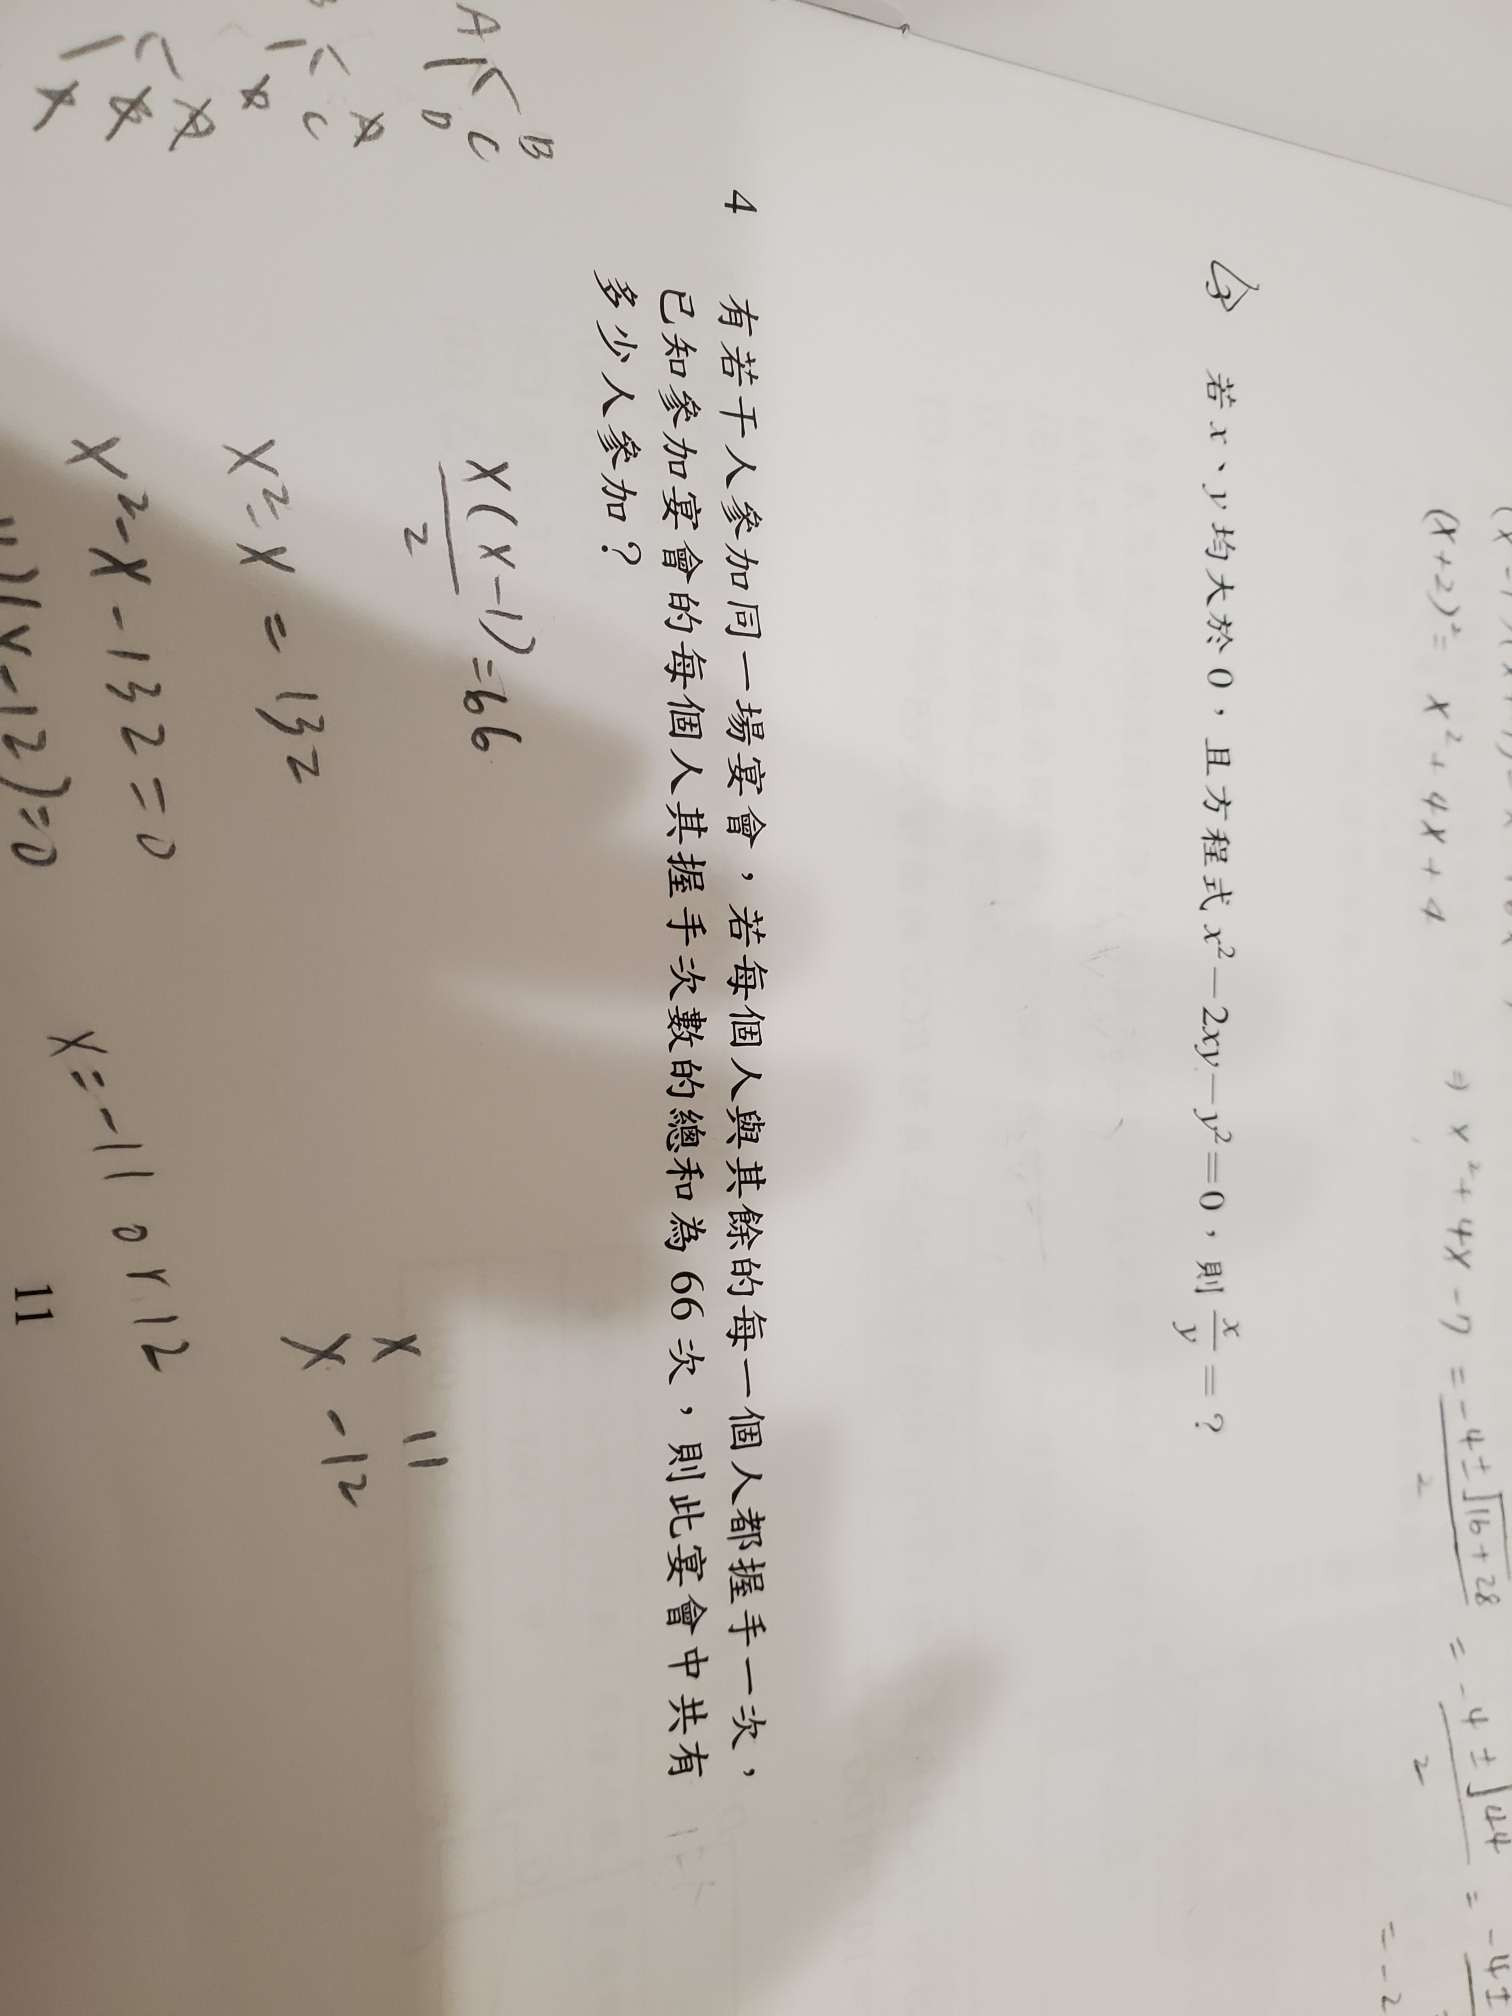 (x+2)² = x²+4x+4
⇒ x²+4x-7 = -4±√16+28 / 2 = -4±√44 / 2 = -4±
= -2
3 若 x、y 均大於 0，且方程式 x²－2xy－y²＝0，則 x/y ＝？
4 有若干人參加同一場宴會，若每個人與其餘的每一個人都握手一次，
已知參加宴會的每個人其握手次數的總和為 66 次，則此宴會中共有
多少人參加？
A B C D
x(x-1)/2 = 66
x²-x = 132
x 11
x -12
x²-x-132=0
x=-11 or 12
(x-12)=0
11